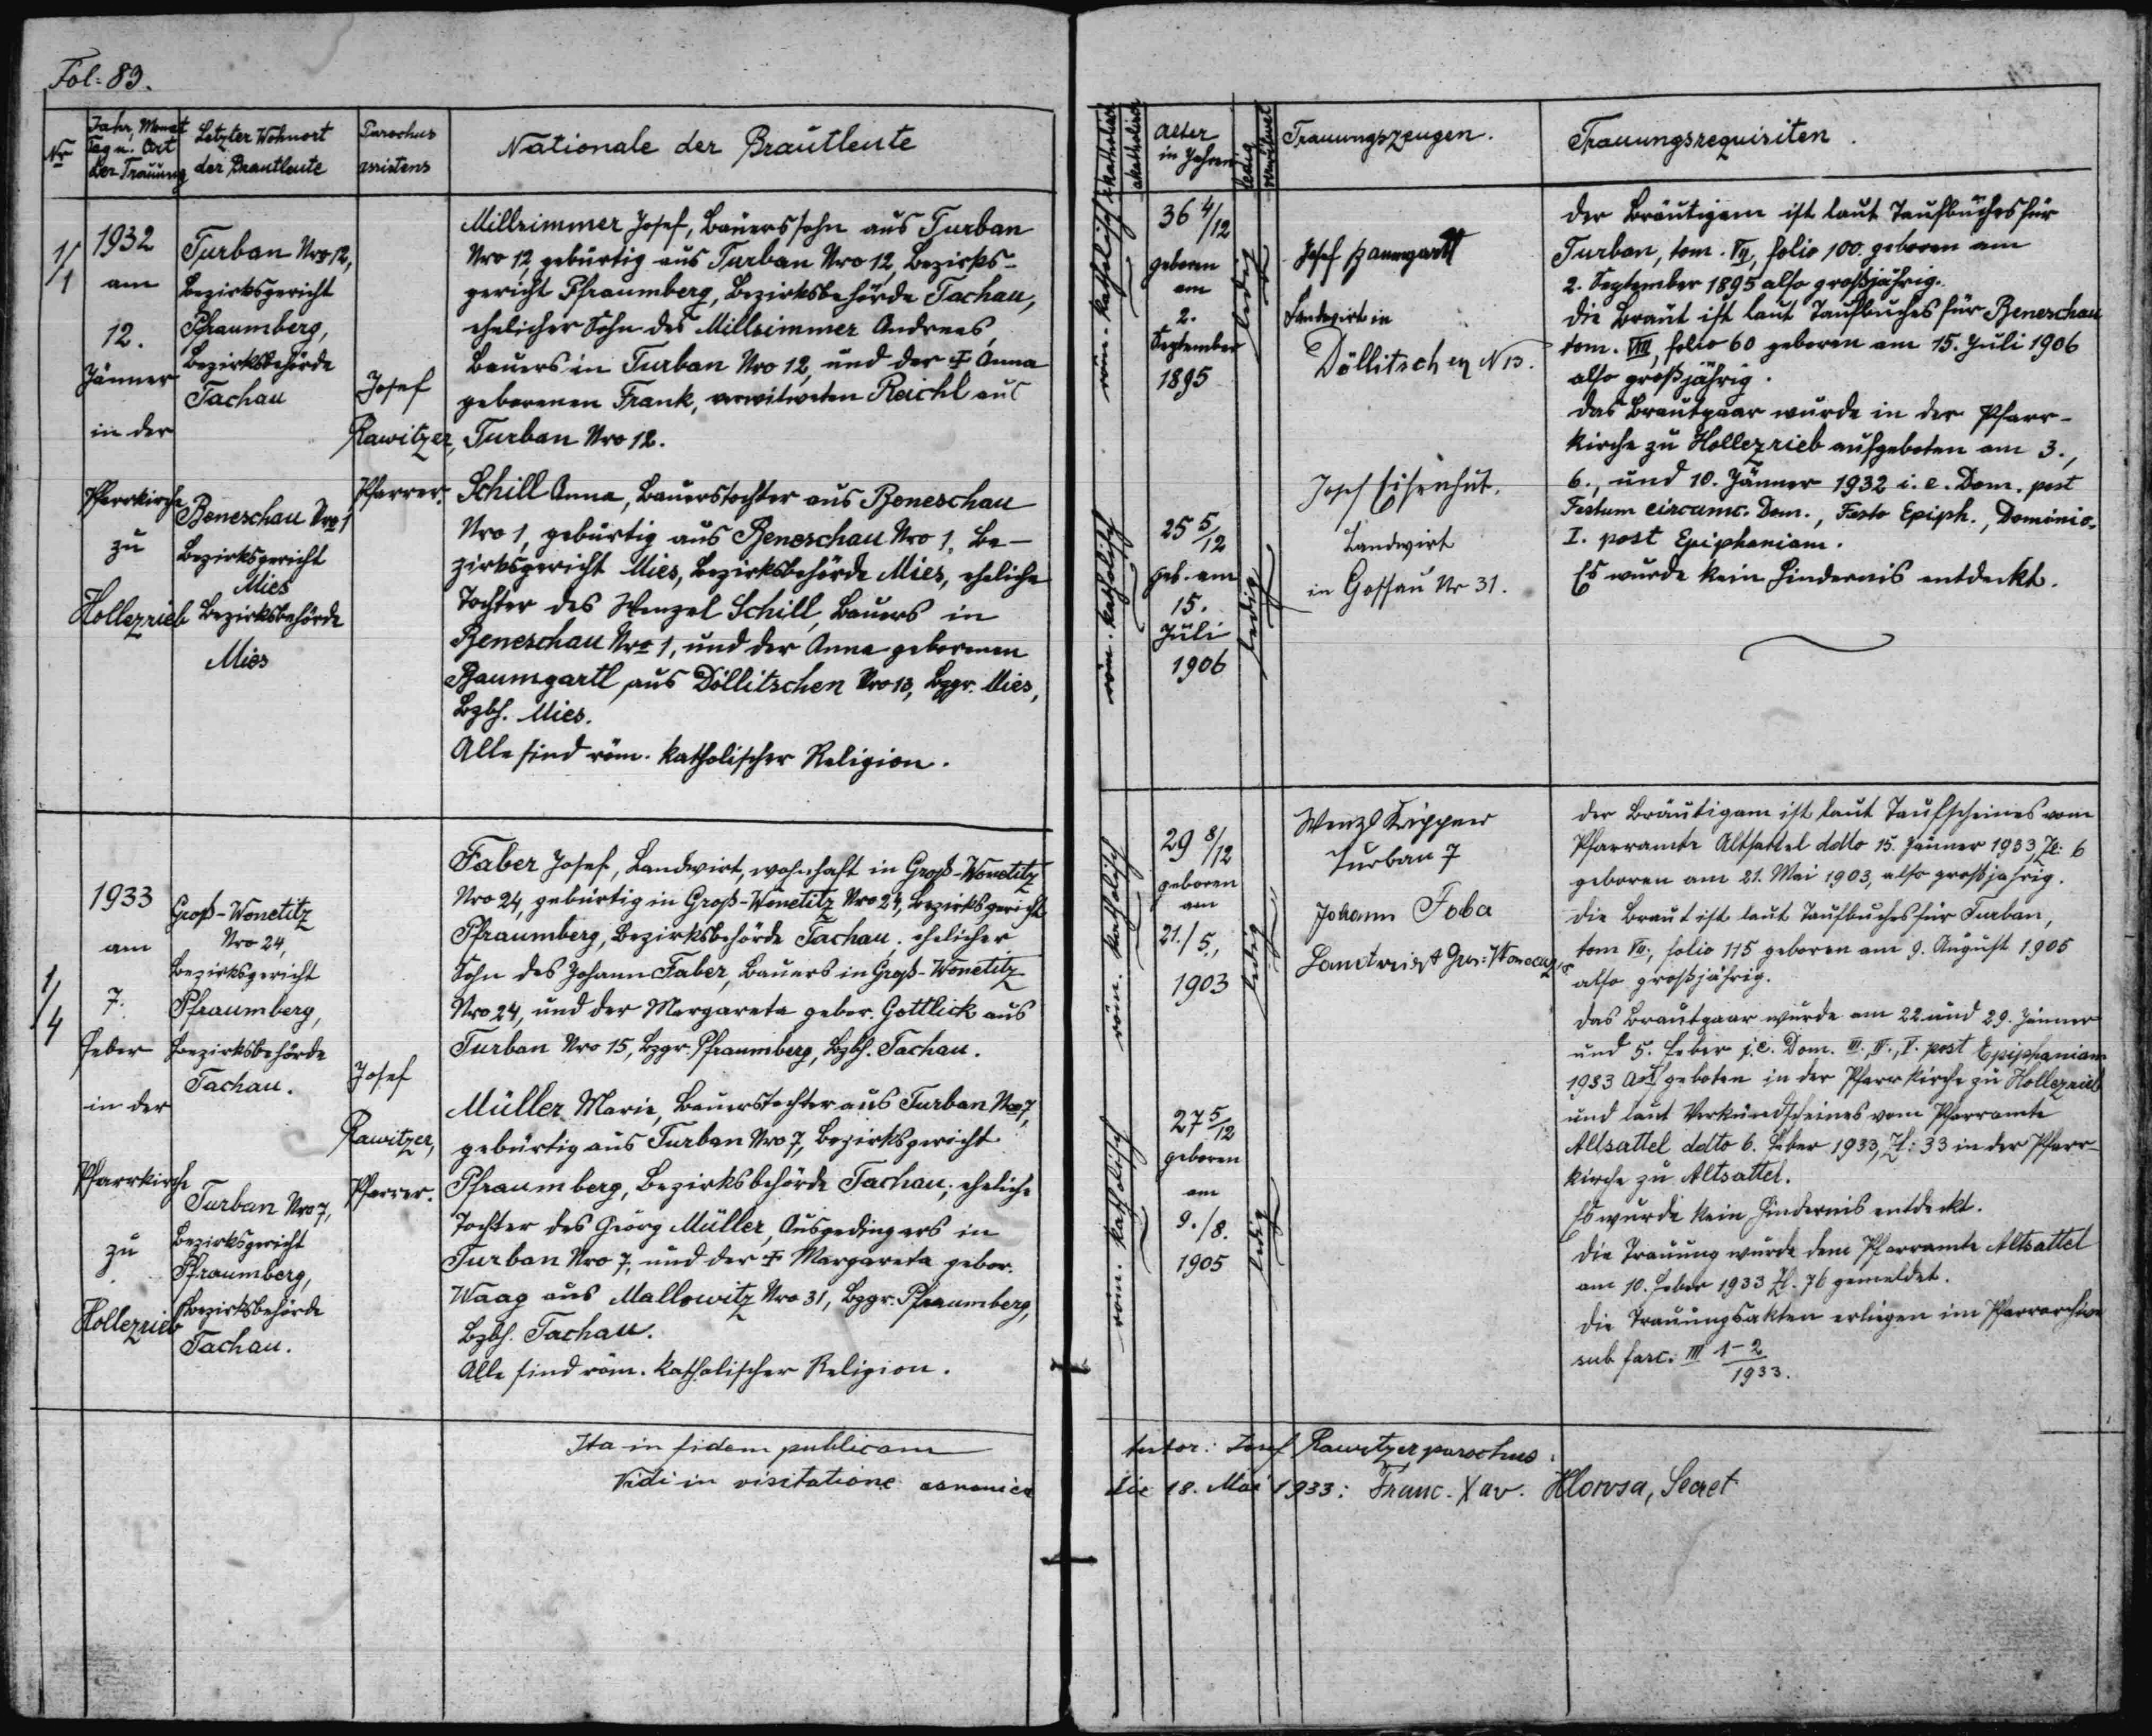 Fol: 83.
Nro
Jahr, Monat
Tag u. Ort
der Trauung
Letzter Wohnort
der Brautleute
Parochus
assistens
Nationale der Brautleute
1/1
1932
am
12.
Jänner
in der
Pfarrkirche
zu
Hollezrieb
Turban Nro 12,
Bezirksgericht
Pfraumberg,
Bezirksbehörde
Tachau
Beneschau Nro 1
Bezirksgericht
Mies
Bezirksbehörde
Mies
Josef
Rawitzer,
Pfarrer.
Millsimmer Josef, Bauerssohn aus Turban
Nro 12, gebürtig aus Turban Nro 12, Bezirks-
gericht Pfraumberg, Bezirksbehörde Tachau,
ehelicher Sohn des Millsimmer Andreas,
Bauers in Turban Nro 12, und der ✝ Anna
geborenen Frank, verwitweten Reichl aus
Turban Nro 12.
Schill Anna, Bauerstochter aus Beneschau
Nro 1, gebürtig aus Beneschau Nro 1, Be-
zirksgericht Mies, Bezirksbehörde Mies, eheliche
Tochter des Wenzel Schill, Bauers in
Beneschau Nro 1, und der Anna geborenen
Baumgartl aus Döllitschen Nro 13, Bzgr. Mies,
Bzbh. Mies.
Alle sind röm. katholischer Religion.
1/4
1933
am
7.
Feber
in der
Pfarrkirche
zu
Hollezrieb
Groß-Wonetitz
Nro 24,
Bezirksgericht
Pfraumberg,
Bezirksbehörde
Tachau.
Turban Nro 7,
Bezirksgericht
Pfraumberg,
Bezirksbehörde
Tachau.
Josef
Rawitzer,
Pfarrer.
Faber Josef, Landwirt, wohnhaft in Groß-Wonetitz
Nro 24, gebürtig in Groß-Wonetitz Nro 24, Bezirksgericht
Pfraumberg, Bezirksbehörde Tachau. ehelicher
Sohn des Johann Faber, Bauers in Groß-Wonetitz
Nro 24, und der Margareta gebor. Gottlick aus
Turban Nro 15, Bzgr. Pfraumberg, Bzbh. Tachau.
Müller Marie, Bauerstochter aus Turban Nro 7,
gebürtig aus Turban Nro 7, Bezirksgericht
Pfraumberg, Bezirksbehörde Tachau; eheliche
Tochter des Georg Müller, Ausgedingers in
Turban Nro 7, und der ✝ Margareta gebor.
Waag aus Mallowitz Nro 31, Bzgr. Pfraumberg,
Bzbh. Tachau.
Alle sind röm. katholischer Religion.
Ita in fidem publicam
Vidi in visitatione canonica
katholisch
akatholisch
Alter
in Jahren
ledig
verwitwet
Trauungszeugen.
Trauungsrequisiten.
röm. katholisch
36 4/12
geboren
am
2.
September
1895
ledig
Josef Baumgartl
Landwirt in
Döllitschen N 13.
röm. katholisch
25 5/12
geb. am
15.
Juli
1906
ledig
Josef Eisenhut,
Landwirt
in Gossau Nr 31.
Der Bräutigam ist laut Taufbuches für
Turban, tom. VII, folio 100. geboren am
2. September 1895 also großjährig.
Die Braut ist laut Taufbuches für Beneschau
tom. VIII, folio 60 geboren am 15. Juli 1906
also großjährig.
Das Brautpaar wurde in der Pfarr-
kirche zu Hollezrieb aufgeboten am 3.,
6., und 10. Jänner 1932 i. e. Dom. post
Festum circumc. Dom., Festo Epiph., Dominic.
I. post Epiphaniam.
Es wurde kein Hindernis entdeckt.
röm. katholisch
29 8/12
geboren
am
21./5.,
1903
ledig
Wenzl Krippner
Turban 7
Johann Foba
röm. katholisch
27 5/12
geboren
am
9./8.
1905
ledig
Der Bräutigam ist laut Taufscheines vom
Pfarramte Altsattel ddto 15. Jänner 1933, Zl: 6
geboren am 21. Mai 1903, also großjährig.
Die Braut ist laut Taufbuches für Turban,
tom VII, folio 115 geboren am 9. August 1905
also großjährig.
Das Brautpaar wurde am 22. und 29. Jänner
und 5. Feber i. e. Dom. III., IV., V. post Epiphaniam
1933 aufgeboten in der Pfarrkirche zu Hollezrieb
und laut Verkündscheines vom Pfarramte
Altsattel ddto 6. Feber 1933, Zl: 33 in der Pfarr-
kirche zu Altsattel.
Es wurde kein Hindernis entdeckt.
Die Trauung wurde dem Pfarramte Altsattel
am 10. Feber 1933 Zl. 76 gemeldet.
Die Trauungsakten erliegen im Pfarrarchive
sub fasc. III 1-2/1933.
testor: Josef Rawitzer parochus.
die 18. Mai 1933: Franc. Xav. Secret